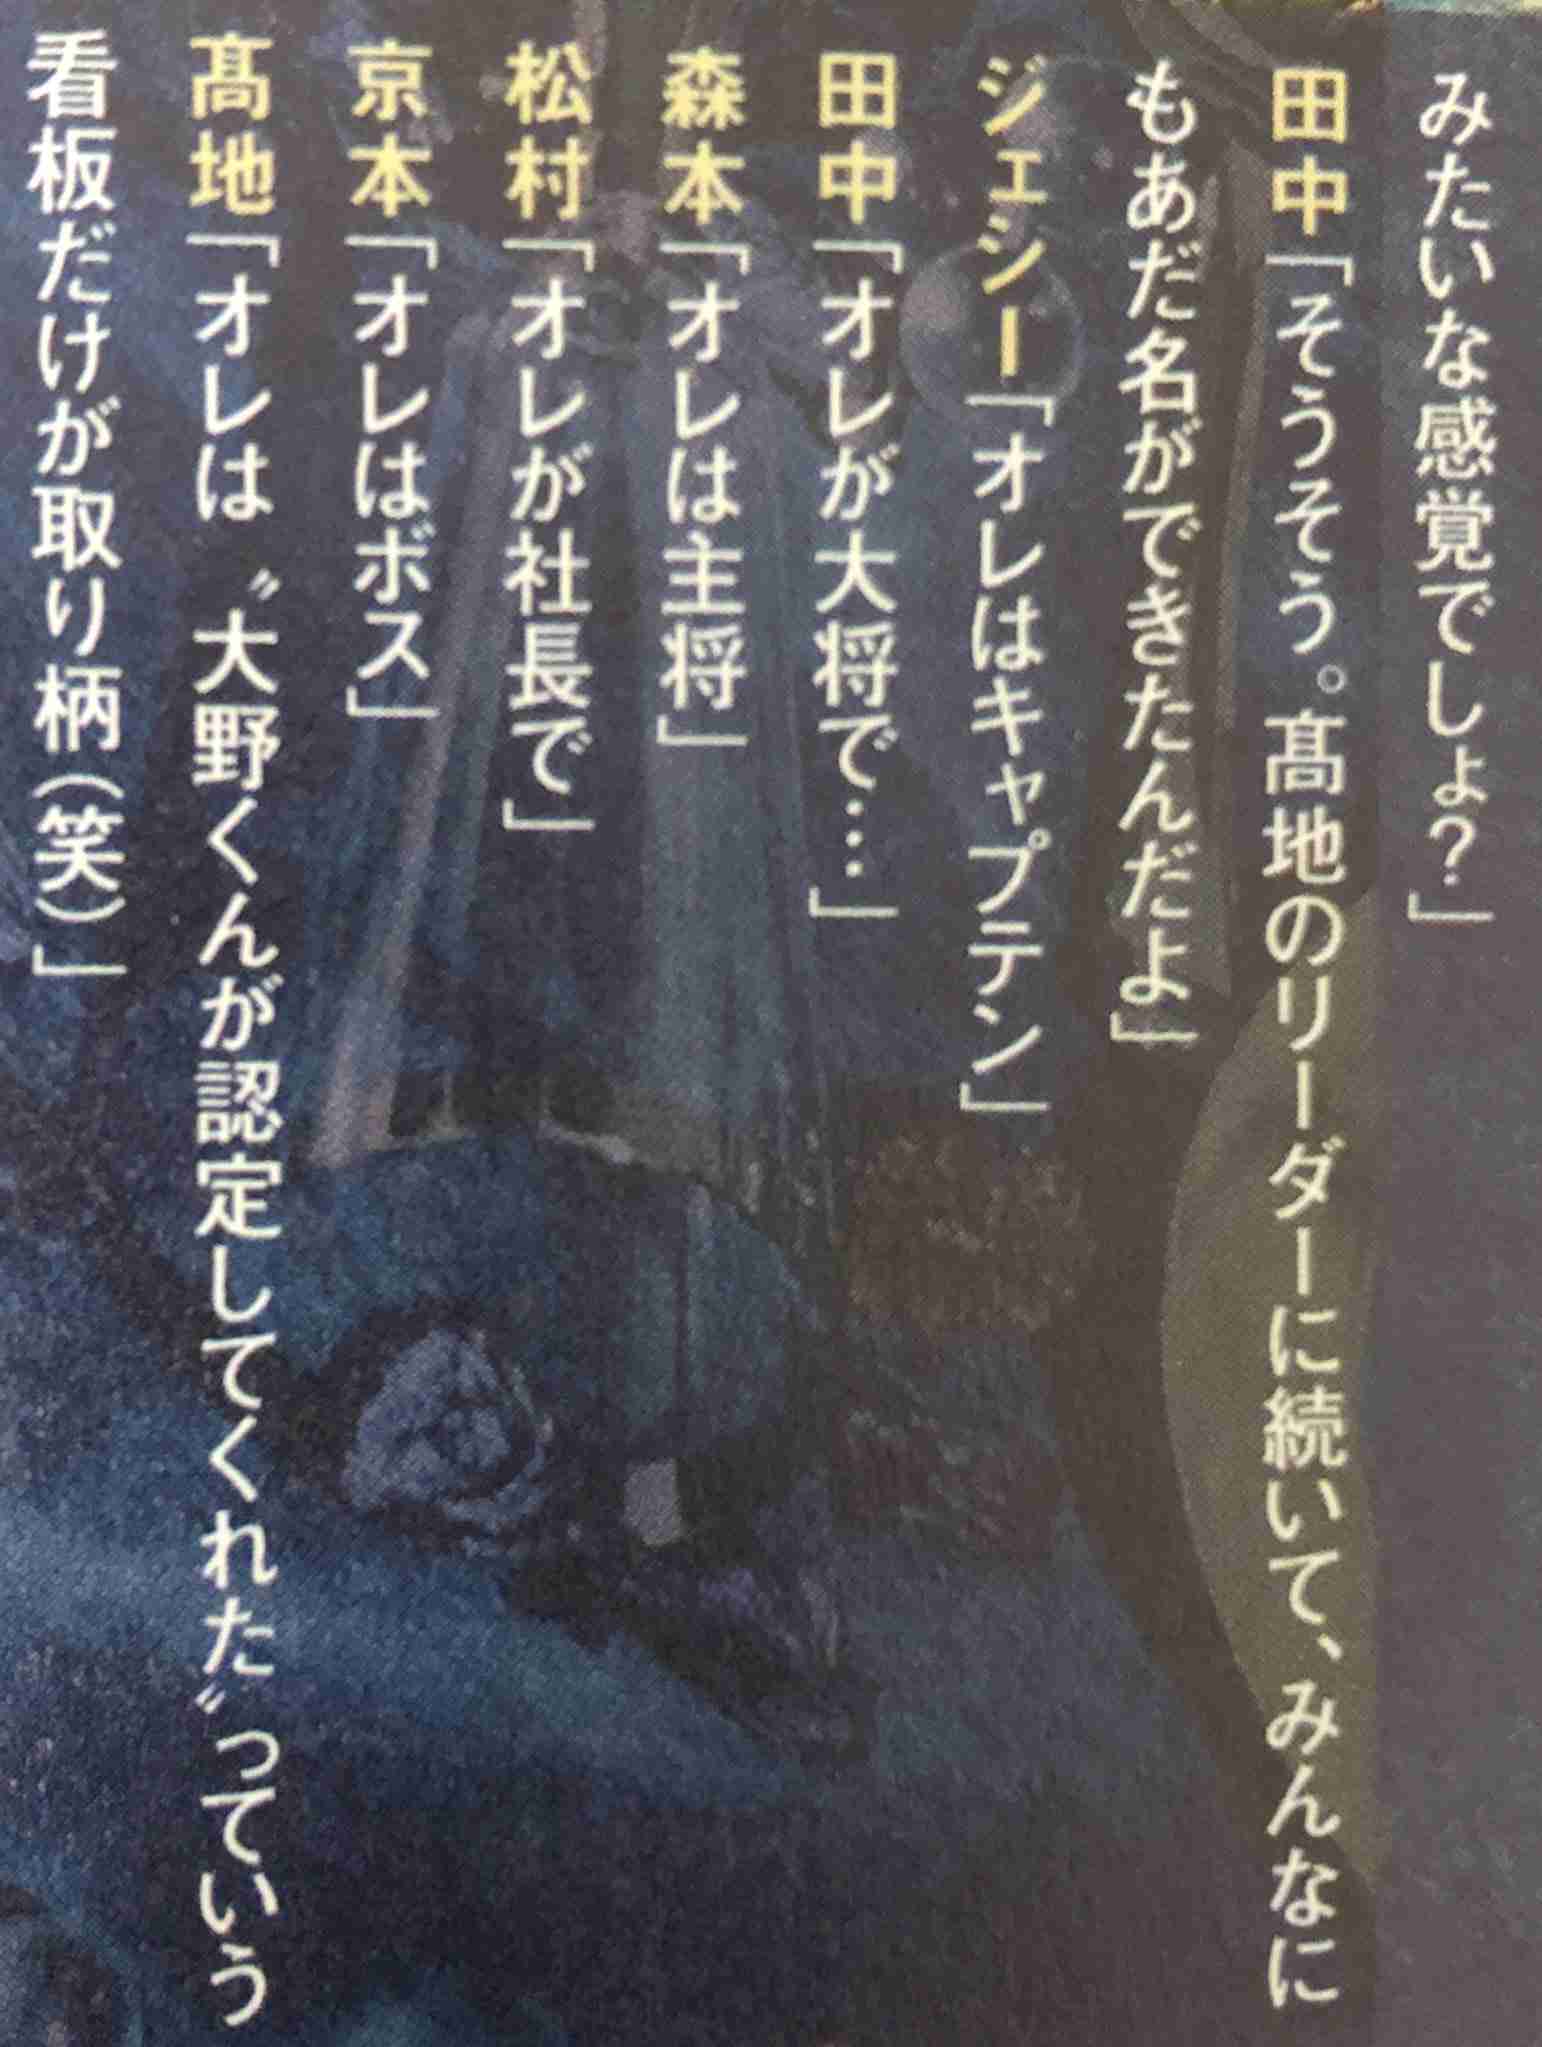 みたいな感覚でしょ？」
田中「そうそう。髙地のリーダーに続いて、みんなに
もあだ名ができたんだよ」
ジェシー「オレはキャプテン」
田中「オレが大将で…」
森本「オレは主将」
松村「オレが社長で」
京本「オレはボス」
髙地「オレは〝大野くんが認定してくれた〟っていう
看板だけが取り柄（笑）」